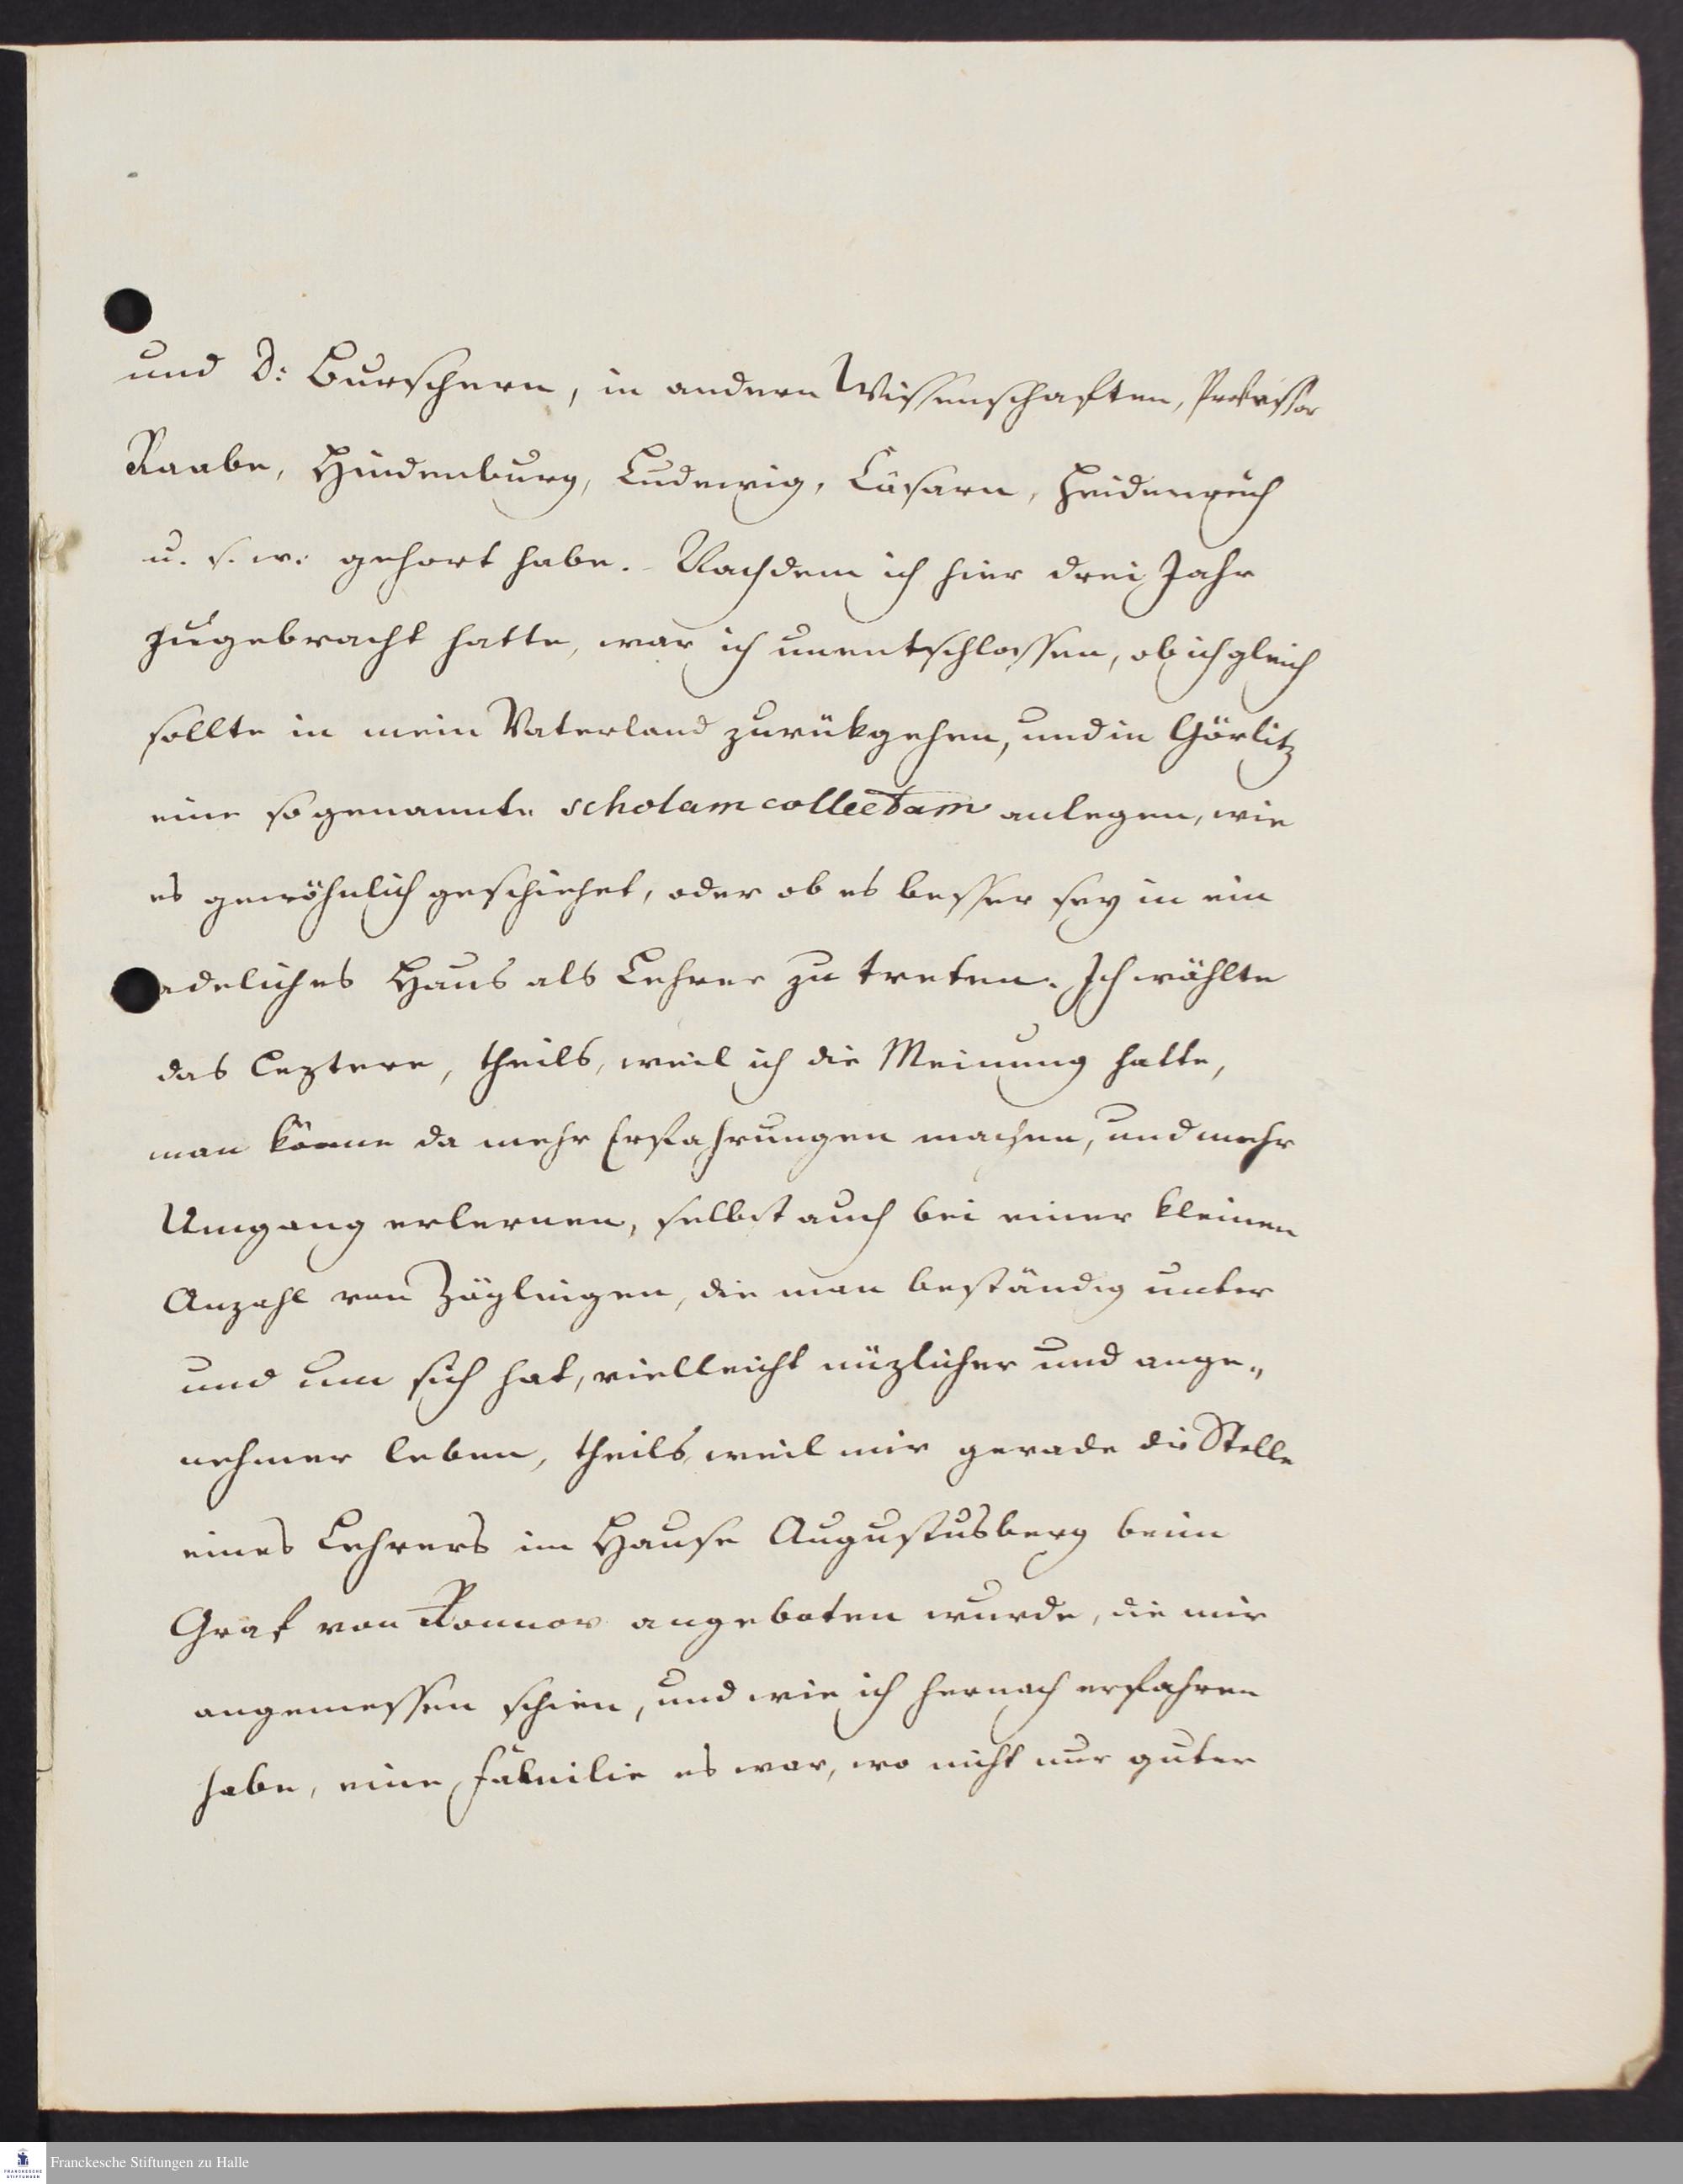 und D: Burschern, in andern Wissenschaften, Professor
Raabe, Hindenburg, Ludewig, Cäsarn, Heidenreich
u. s. w: gehort habe. Nachdem ich hier drei Jahr
zugebracht hatte, war ich unentschlossen, ob ich gleich
sollte in mein Vaterland zurükgehen, und in Görlitz
eine sogenannte scholam collectam anlegen, wie
es gewöhnlich geschiehet, oder ob es besser sey in ein
adeliches Haus als Lehrer zu treten. Ich wählte
das leztere, theils, weil ich die Meinung hatte,
man könne da mehr Erfahrungen machen, und mehr
Umgang erlernen, selbst auch bei einer kleinen
Anzahl von Zöglingen, die man beständig unter
und um sich hat, vielleicht nüzlicher und ange„
nehmer leben, theils, weil mir gerade die Stelle
eines Lehrers im Hause Augustusberg beim
Graf von Ronnow angeboten wurde, die mir
angemessen schien, und wie ich hernach erfahren
habe, eine Familie es war, wo nicht nur guter
FRANCKESCHE
STIFTUNGEN
Franckesche Stiftungen zu Halle